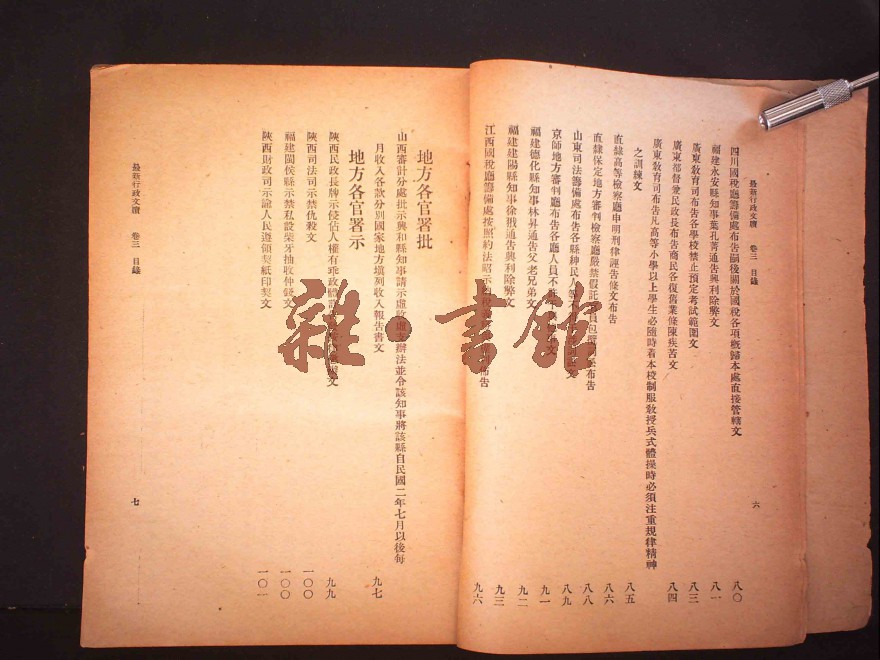 最新行政文牘 卷三 目錄
六
四川國稅廳籌備處布告嗣後關於國稅各項概歸本處直接管轄文 八〇
福建永安縣知事葉孔菁通告興利除弊文 八一
廣東教育司布告各學校禁止預定考試範圍文 八三
廣東都督兼民政長布告商民各復舊業條陳疾苦文 八四
廣東教育司布告凡高等小學以上學生必隨時着本校制服教授兵式體操時必須注重規律精神
之訓練文 八五
直隸高等檢察廳申明刑律誣告條文布告 八六
直隸保定地方審判檢察廳嚴禁假託 員包攬 布告 八八
山東司法籌備處布告各縣紳民人等 文 八九
京師地方審判廳布告各廳人員不 文 九一
福建德化縣知事林昇通告父老兄弟文 九二
福建建陽縣知事徐戩通告興利除弊文 九三
江西國稅廳籌備處按照約法昭示 稅 布告 九六
地方各官署批
山西審計分處批示興和縣知事請示 支辦法並令該知事將該縣自民國二年七月以後每
月收入各款分別國家地方填列收入報告書文 九七
地方各官署示
陝西民政長牌示侵佔人權有乖政體 文 九九
陝西司法司示禁仇殺文 一〇〇
福建閩侯縣示禁私設柴牙抽收仲錢文 一〇〇
陝西財政司示諭人民遵領契紙印契文 一〇一
最新行政文牘 卷三 目錄
七
雜·書館